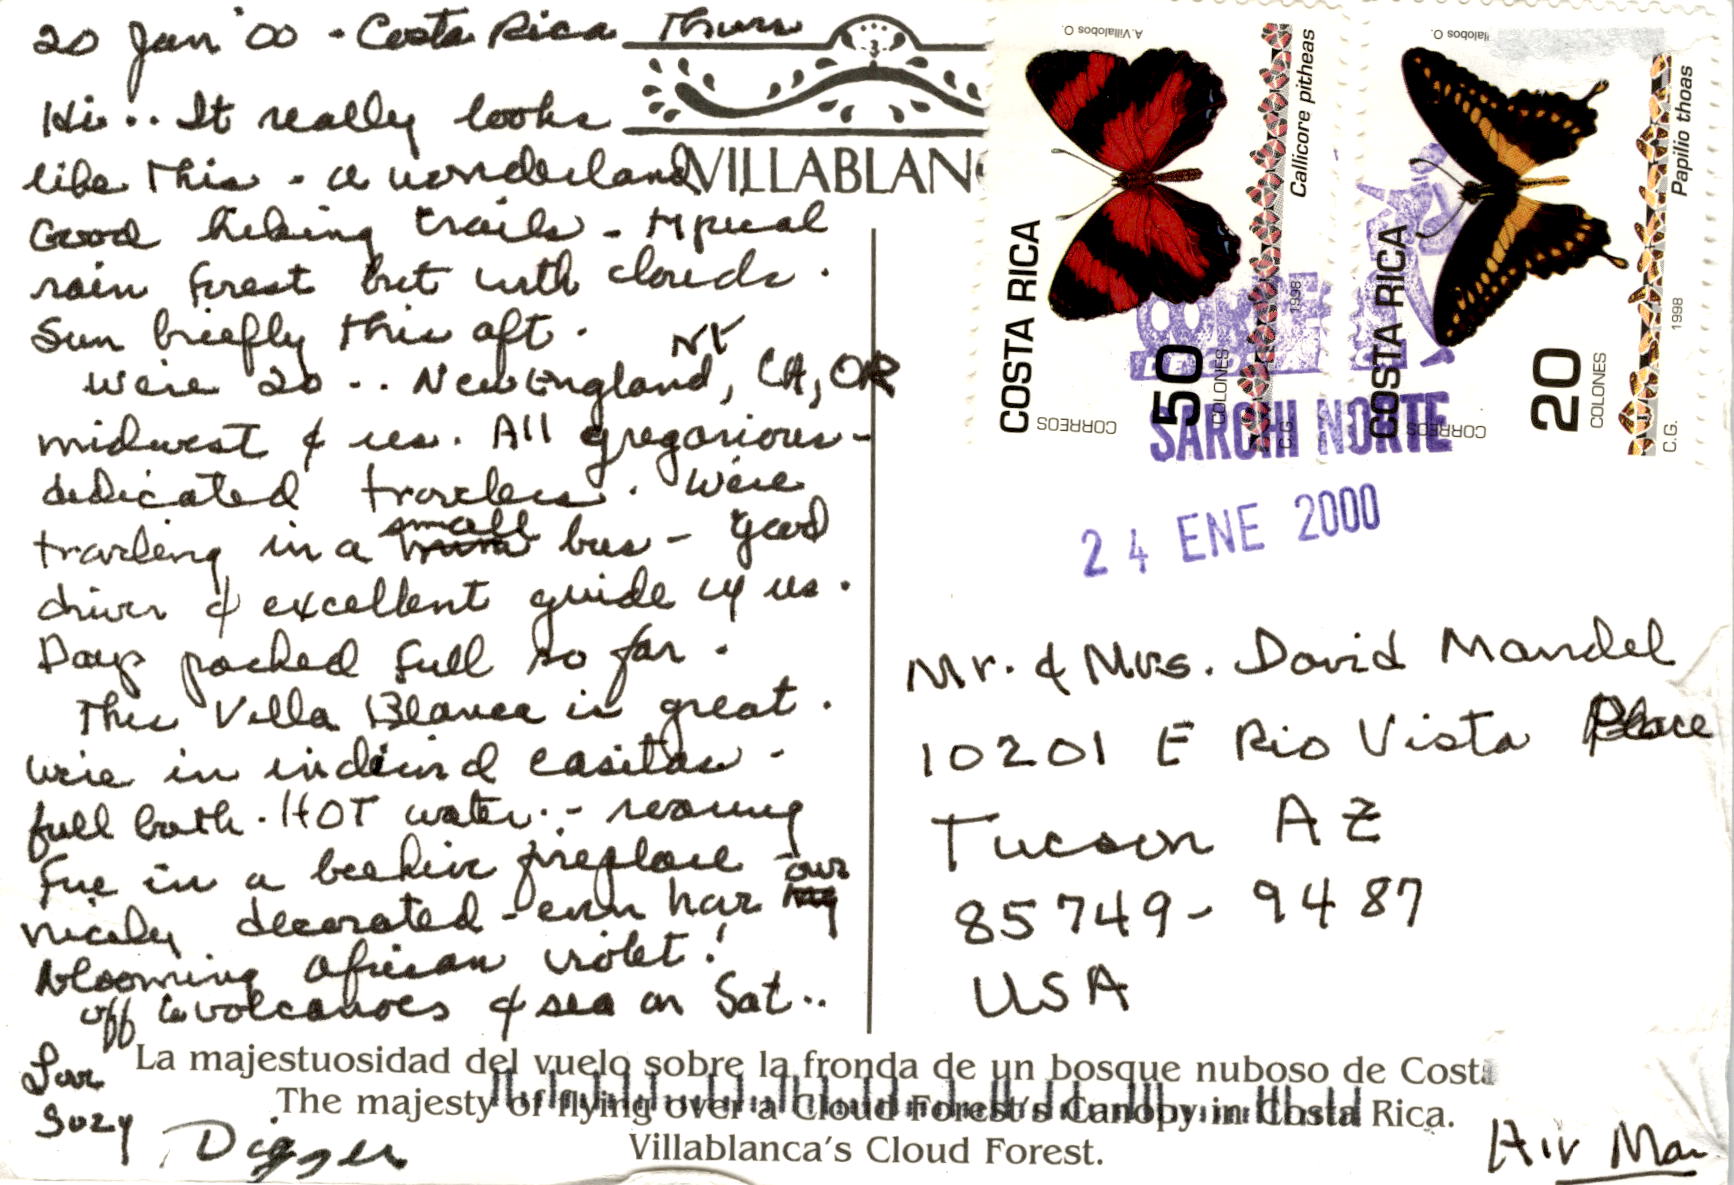 20 Jan '00 - Costa Rica Thurs
Hi.. It really looks
like this - a wonderland
Good hiking trails - typical
rain forest but with clouds.
Sun briefly this aft.
We're 20 .. New England, NY, CA, OR
midwest & us. All gregarious -
dedicated travelers. We're
traveling in a small bus - good
driver & excellent guide w/ us.
Days packed full so far.
This Villa Blanca is great.
We're in individ casitas -
full bath. HOT water - roaring
fire in a beehive fireplace
nicely decorated - even has our
blooming african violet!
off to volcanoes & sea on Sat..
Love
Suzy
Digger
VILLABLANC
A. Villalobos O.
COSTA RICA
CORREOS
50
COLONES
C.G.
1998
Callicore pitheas
Villalobos O.
COSTA RICA
CORREOS
20
COLONES
C.G.
1998
Papilio thoas
SARCHI NORTE
24 ENE 2000
Mr. & Mrs. David Mandel
10201 E Rio Vista Place
Tucson AZ
85749-9487
USA
La majestuosidad del vuelo sobre la fronda de un bosque nuboso de Costa
The majesty of flying over a Cloud Forest's Canopy in Costa Rica.
Villablanca's Cloud Forest.
Air Mai